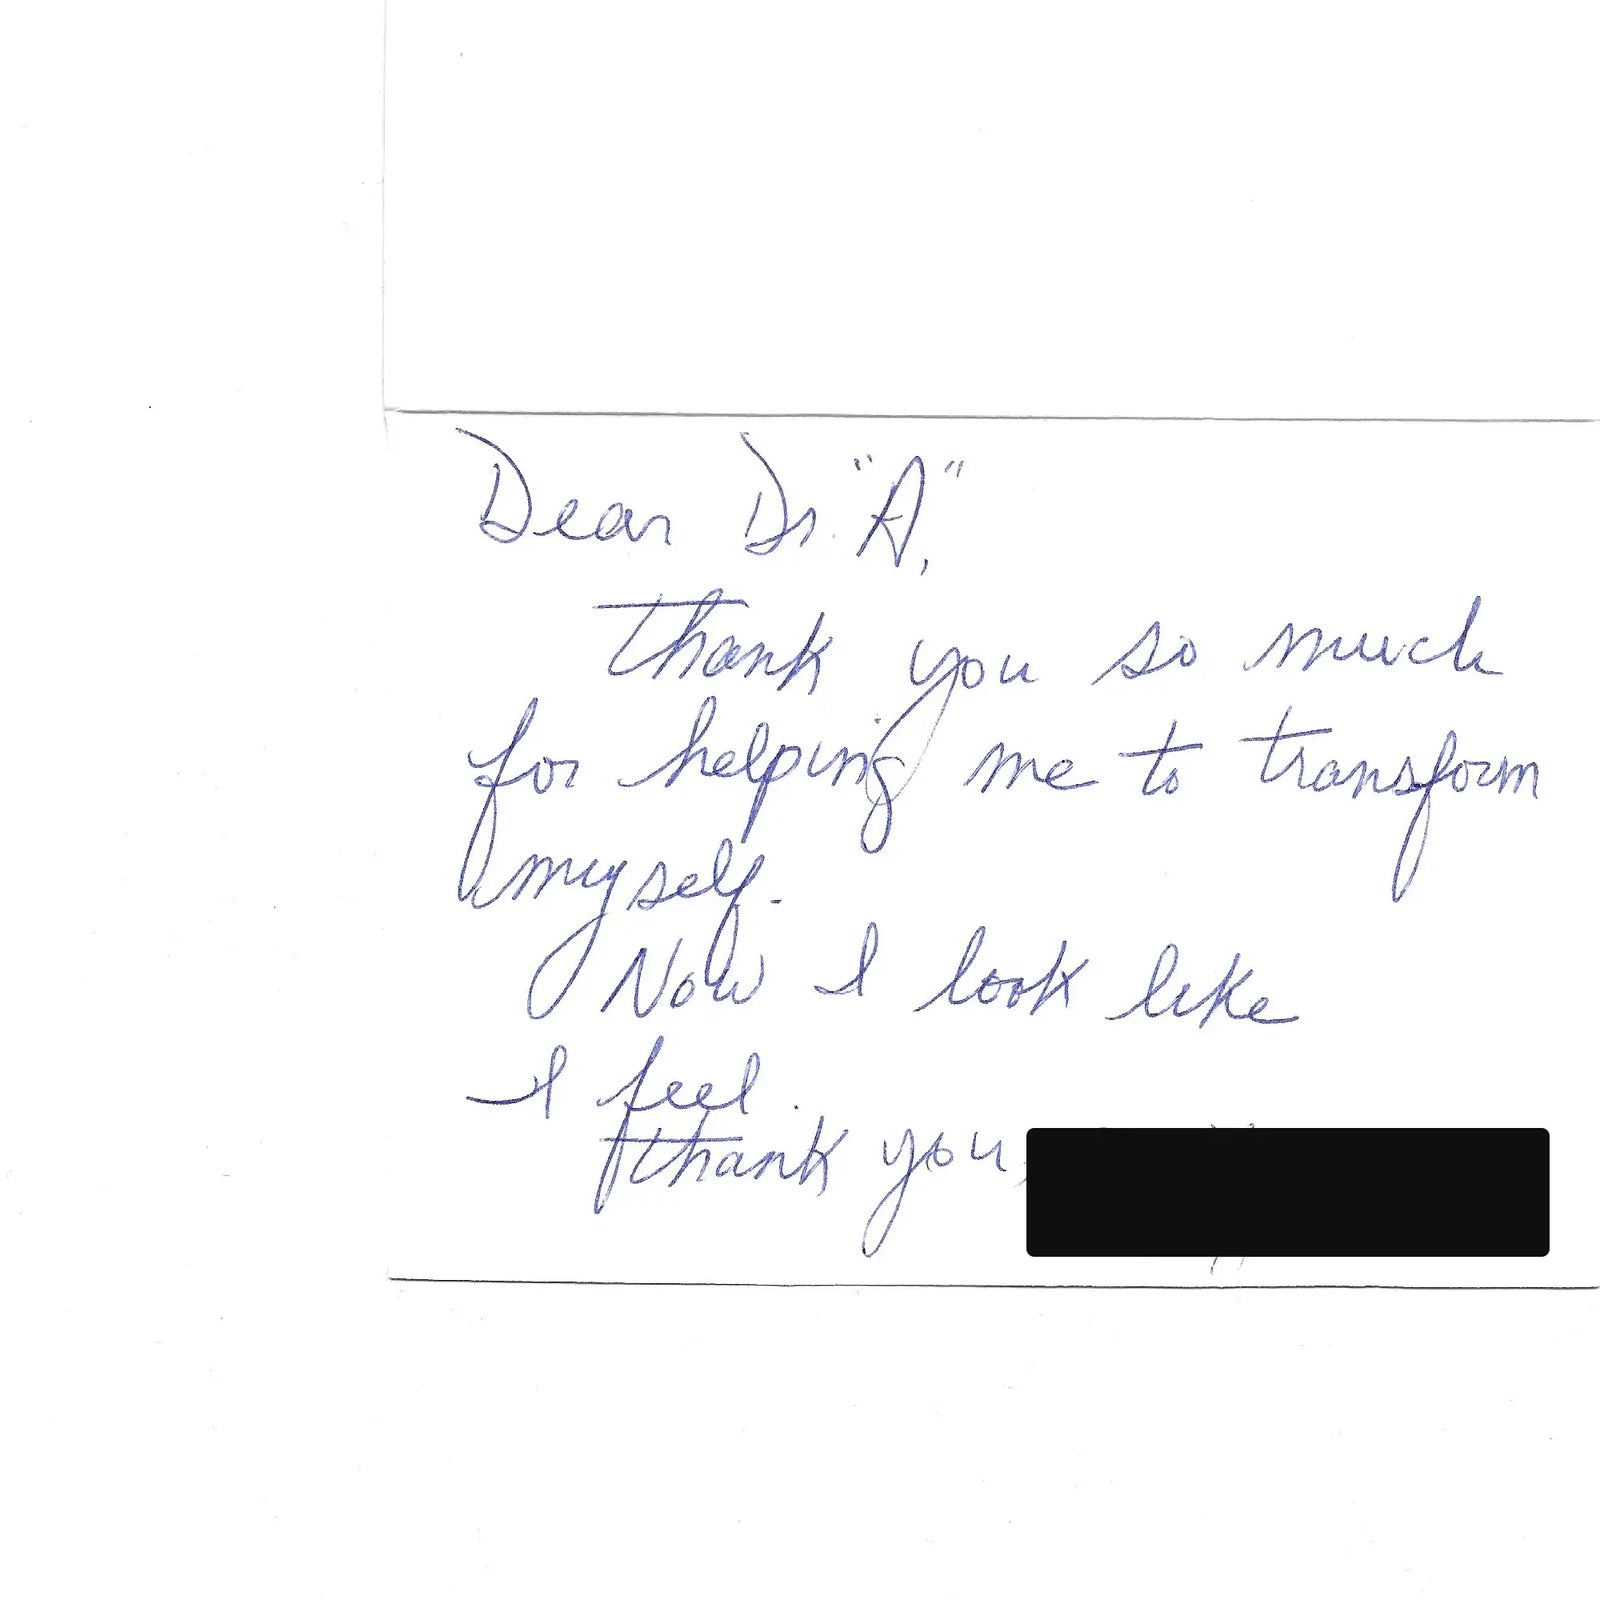 Dear Dr. "A",
Thank you so much
for helping me to transform
myself.
Now I look like
I feel.
Thank you,